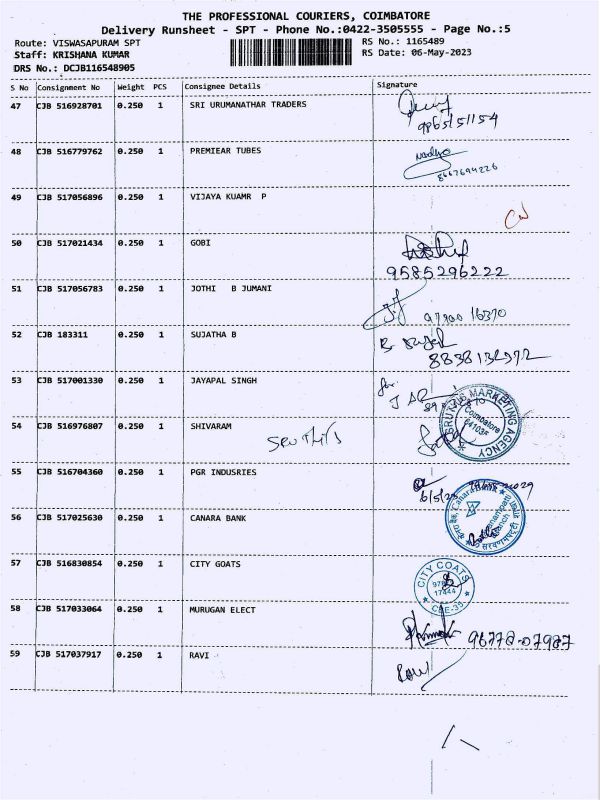 THE PROFESSIONAL COURIERS, COIMBATORE
Delivery Runsheet - SPT - Phone No.:0422-3505555 - Page No.:5
Route: VISWASAPURAM SPT
RS No.: 1165489
Staff: KRISHANA KUMAR
RS Date: 06-May-2023
DRS No.: DCJB116548905
S No Consignment No Weight PCS Consignee Details Signature
47 CJB 516928701 0.250 1 SRI URUMANATHAR TRADERS
9865151154
48 CJB 516779762 0.250 1 PREMIEAR TUBES
8667694226
49 CJB 517056896 0.250 1 VIJAYA KUAMR P
50 CJB 517021434 0.250 1 GOBI
9585296222
51 CJB 517056783 0.250 1 JOTHI B JUMANI
52 CJB 183311 0.250 1 SUJATHA B
53 CJB 517001330 0.250 1 JAYAPAL SINGH
SRUTHIS MARKETING AGENCY
Coimbatore
54 CJB 516976807 0.250 1 SHIVARAM
55 CJB 516704360 0.250 1 PGR INDUSRIES
6/5/23
56 CJB 517025630 0.250 1 CANARA BANK
Canara Bank
57 CJB 516830854 0.250 1 CITY GOATS
CITY COATS
17444
CBE-35
58 CJB 517033064 0.250 1 MURUGAN ELECT
96778-07987
59 CJB 517037917 0.250 1 RAVI